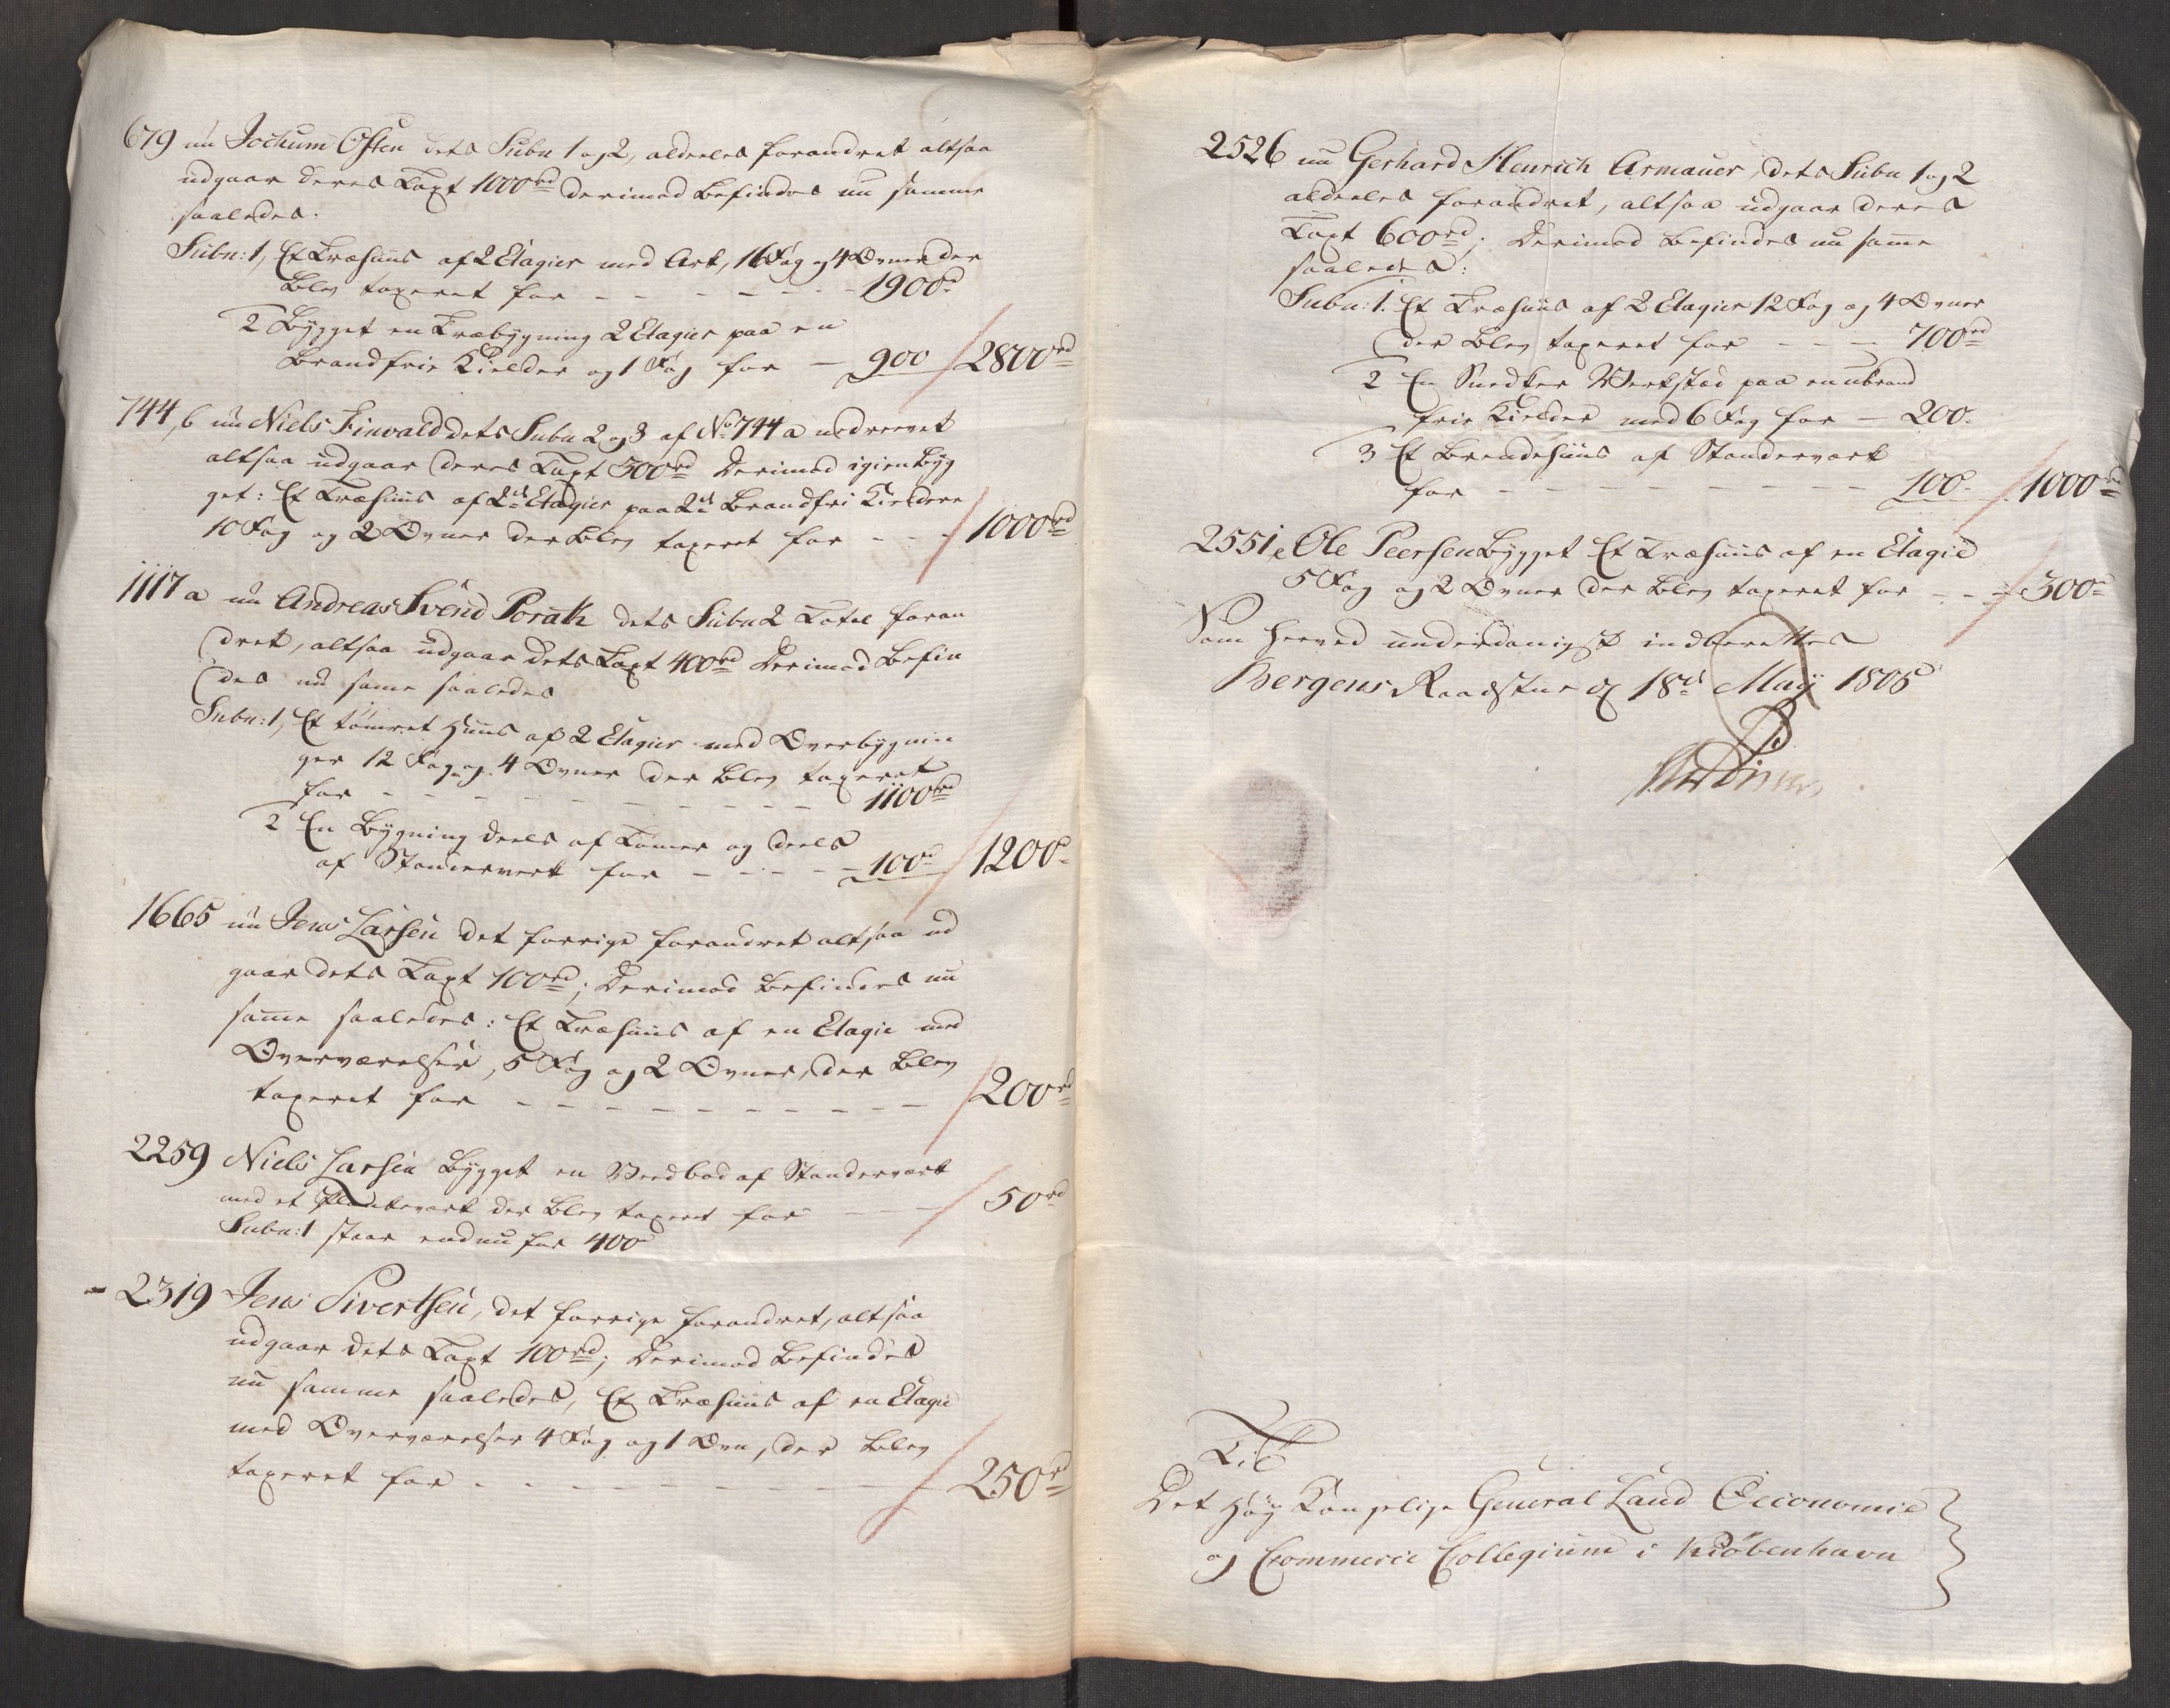 679 nu Jochum Osten dets Subn 1 og 2, aldeeles forandret altsaa
udgaar deres Taxt 1000rd derimod befindes nu samme
saaledes.
Subn: 1, Et Træhuus af 2 Etagier med Ark, 16 Fag og 4 Ovner der
blev taxeret for - - - - - - 1900rd
2 Bygget en Træbygning 2 Etagier paa en
brandfrie Kielder og 1 Fag for - 900 / 2800rd
744, b nu Niels Finvald dets Subn 2 og 3 af No 744 a nedrevet
altsaa udgaar deres Taxt 500rd Derimod igien byg
get: Et Træhuus af 2de Etagier paa 2de Brandfri Kieldere
10 Fag og 2 Ovner der blev taxeret for - - - / 1000rd
1117 a nu Andreas Svend Porath dets Subn 2 Total foran
dret, altsaa udgaar dets Taxt 400rd Derimod befin
des nu same saaledes
Subn: 1, Et tømret Huus af 2 Etagier med Overbygnin
ger 12 Fag og 4 Ovner der blev taxeret
for - - - - - - - - - - 1100rd
2 En Bygning deels af Tømer og deels
af Standerverk for - - - - - 100rd / 1200rd
1665 nu Jens Larsen det forrige forandret altsaa ud
gaar dets Taxt 100rd; Derimod befindes nu
same saaledes: Et Træhuus af en Etagie med
Overværelser, 5 Fag og 2 Ovner, der blev
taxeret for - - - - - - - - - - - / 200rd
2259 Niels Larsen bygget en Veedbod af Standerværk
med et der blev taxeret for - - / 50rd
Subn: 1 staar endnu for 400rd
- 2319 Jens Sivertsen, det forrige forandret, altsaa
udgaar dets Taxt 100rd; Derimod befindes
nu samme saaledes, Et Træhuus af en Etagie
med Overværelser 4 Fag og 1 Ovn, der blev
taxeret for - - - - - - - - - - / 250rd
2526 nu Gerhard Henrich Armauer, dets Subn 1 og 2
aldeeles forandret, altsaa udgaar deres
Taxt 600rd; Derimod befindes nu same
saaledes:
Subn: 1. Et Træhuus af 2 Etagier 12 Fag og 4 Ovner
der blev taxeret for - - - 700rd
2 En Snedker Verksted paa en ubrand
frie Kielder med 6 Fag for - 200.
3 Et Brendehuus af Standerværk
for - - - - - - - - - - 100. / 1000rd
2551 e Ole Peersen bygget Et Træhuus af en Etagie
5 Fag og 2 Ovner der blev taxeret for - - - / 300rd
Som herved underdanigst indberettes
Bergens Raadstue d 18de Maij 1805
Til
Det Høy Kongelige General Land Oeconomie
og Commerce Collegium i Kiøbenhavn